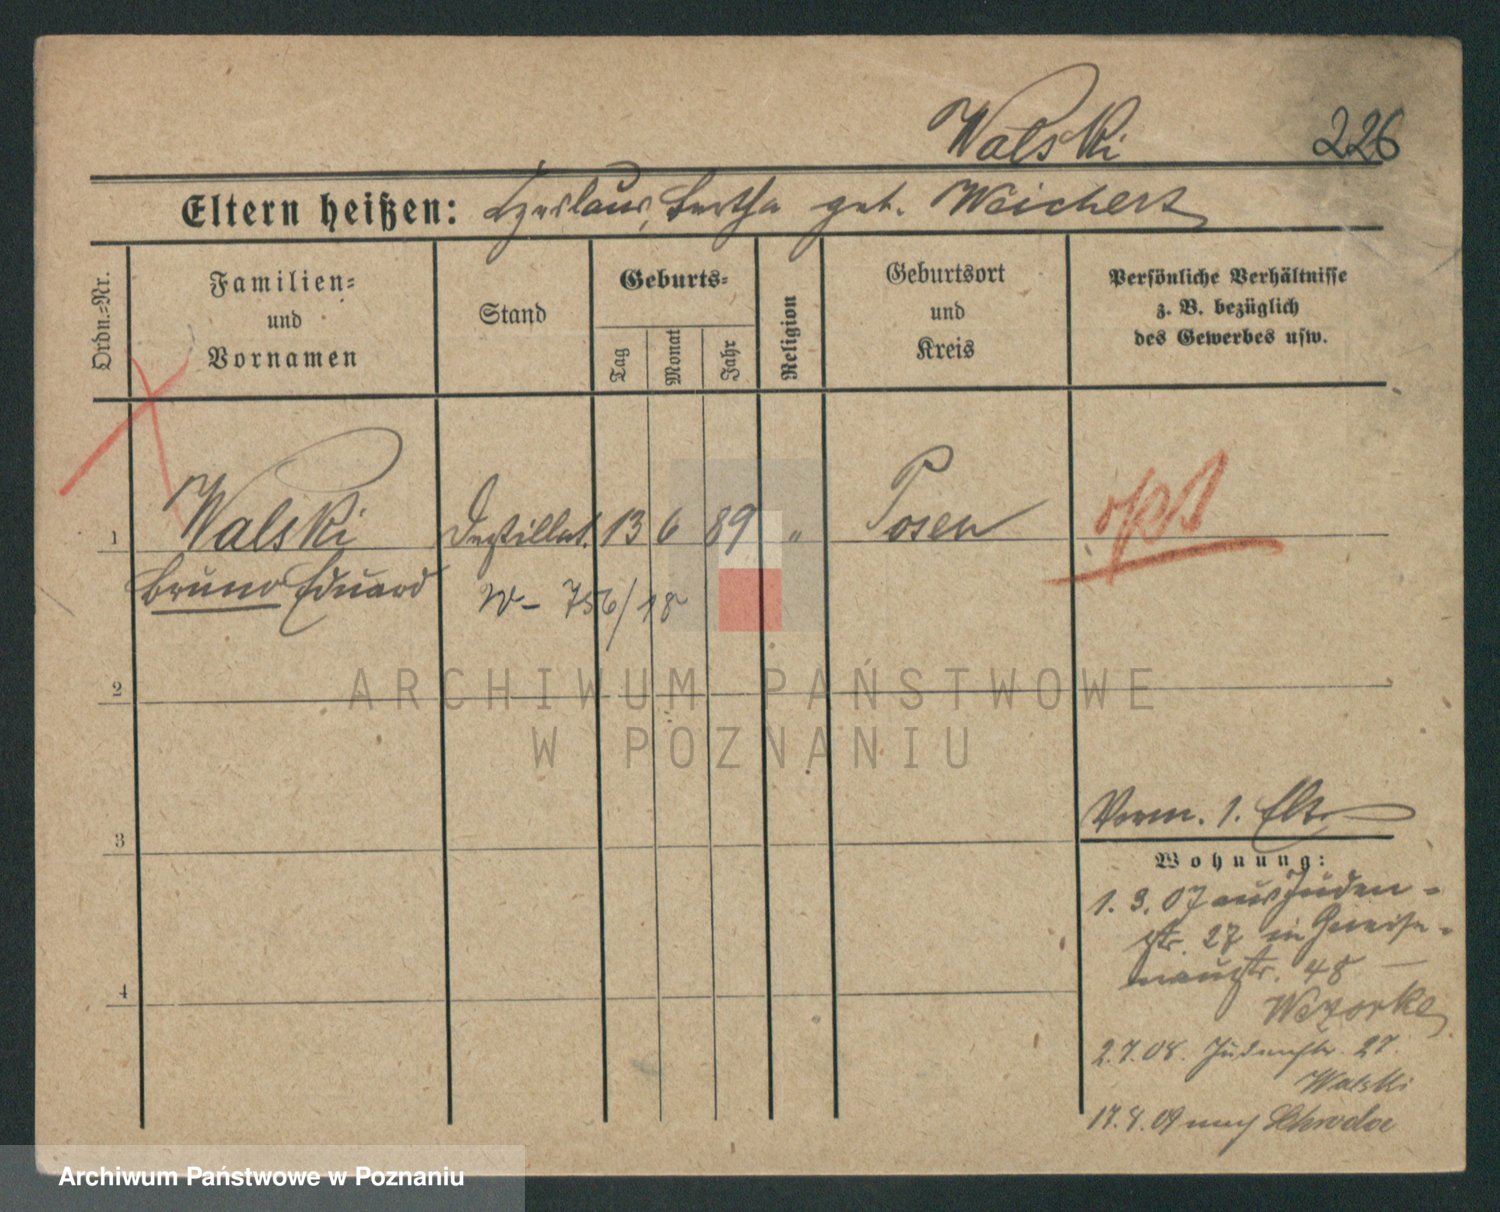 Walski
226
Eltern heißen: Czeslaus, Bertha geb. Weichert
Ordn.-Nr.
Familien-
und
Vornamen
Stand
Geburts-
Tag
Monat
Jahr
Religion
Geburtsort
und
Kreis
Persönliche Verhältnisse
z. B. bezüglich
des Gewerbes usw.
1 Walski Destillat. 13 6 89 " Posen
Bruno Eduard W- 756/18
2
ARCHIWUM PAŃSTWOWE
W POZNANIU
3
4
Vorm. 1. Elt.
Wohnung:
1. 3. 07 aus Juden-
str. 27 in Gneise-
naustr. 48 —
Wezorke
2.7.08. Judenstr. 27.
Walski
17.8.09 nach Schroda
Archiwum Państwowe w Poznaniu